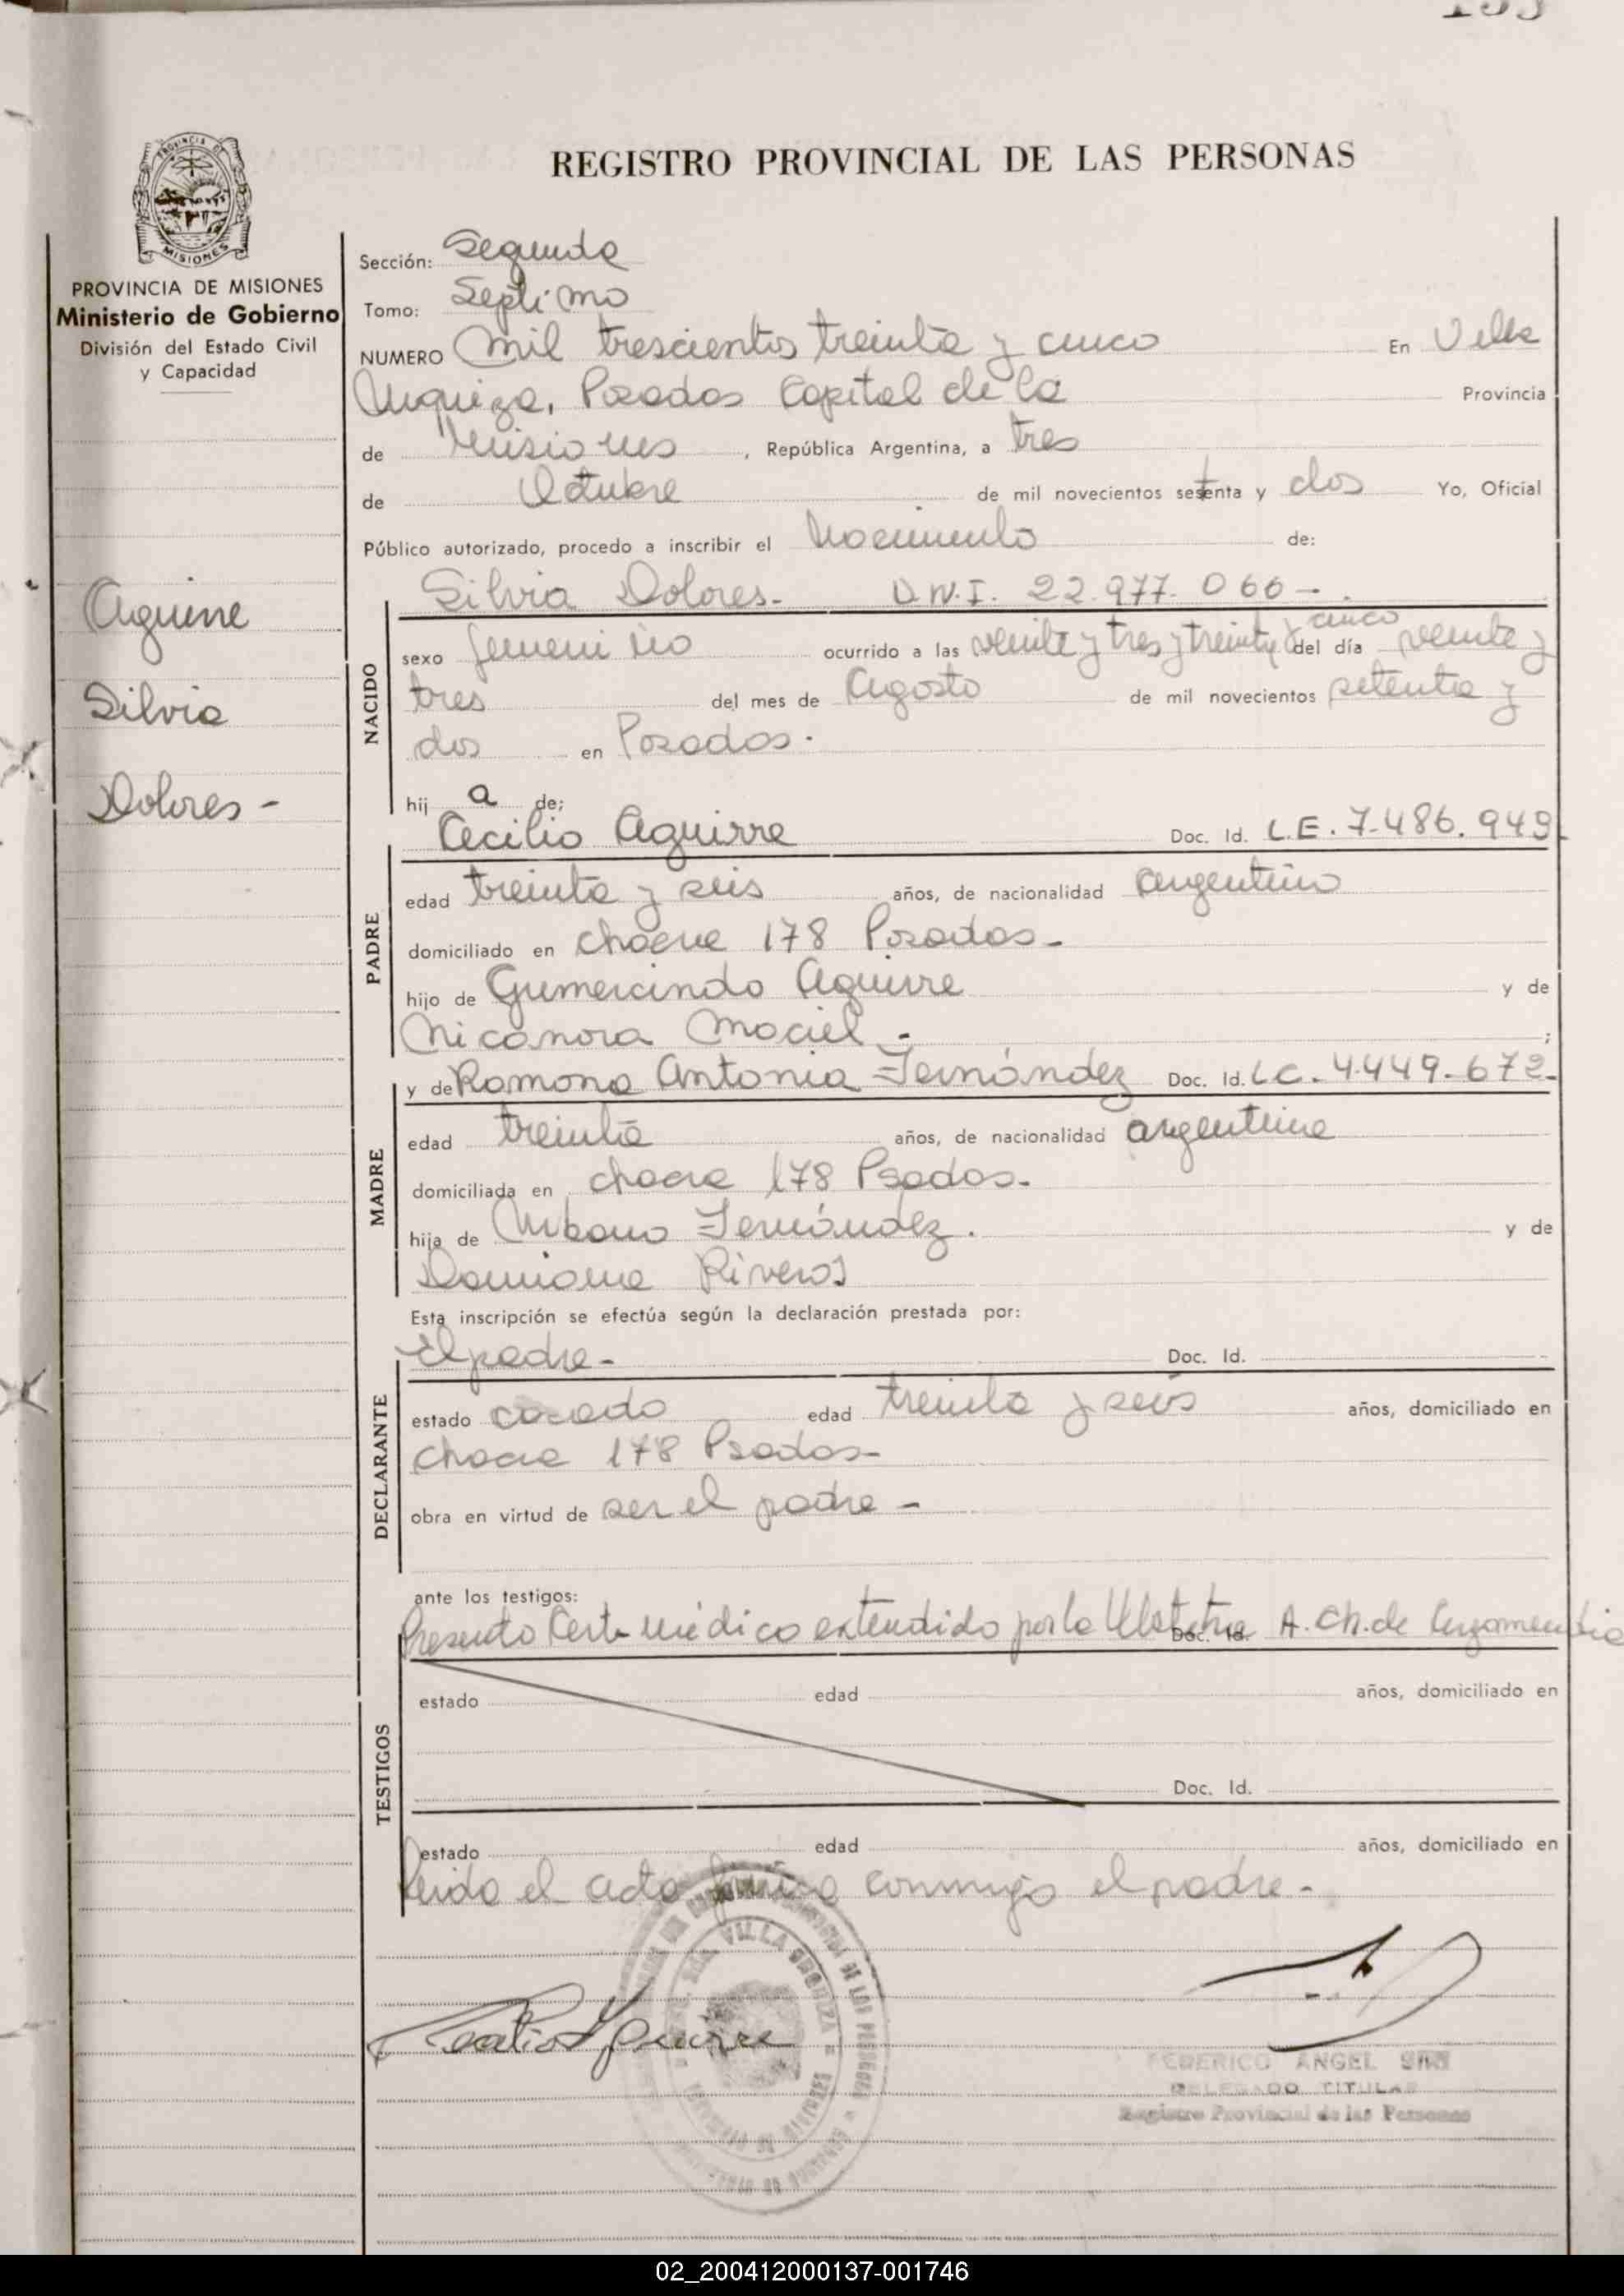 REGISTRO PROVINCIAL DE LAS PERSONAS
PROVINCIA DE MISIONES
Ministerio de Gobierno
División del Estado Civil
y Capacidad
Aguirre
Silvia
Dolores -
Sección: Segunda
Tomo: Septimo
NUMERO Mil trescientos treinta y cinco En Villa
Urquiza, Posadas Capital de la Provincia
de Misiones, República Argentina, a tres
de Octubre de mil novecientos setenta y dos Yo, Oficial
Público autorizado, procedo a inscribir el Nacimiento de:
NACIDO
Silvia Dolores.- D.N.I. 22.977.066 - .
cinco
sexo femenino ocurrido a las veinte y tres y treinta y del día veinte y
tres del mes de Agosto de mil novecientos setenta y
dos en Posadas.
hij a de;
PADRE
Cecilio Aguirre Doc. Id. L.E. 7.486.949.
edad treinta y seis años, de nacionalidad argentino
domiciliado en chacra 178 Posadas-
hijo de Gumercindo Aguirre y de
Nicanora Maciel.- ;
MADRE
y de Ramona Antonia Fernández Doc. Id. L.C. 4.449.672-
edad treinta años, de nacionalidad argentina
domiciliada en chacra 178 Psadas.
hija de Urbano Fernández. y de
Damiana Riveros
Esta inscripción se efectúa según la declaración prestada por:
DECLARANTE
El padre- Doc. Id.
estado casado edad treinta y seis años, domiciliado en
chacra 178 Psadas-
obra en virtud de ser el padre -
ante los testigos:
TESTIGOS
Presento Cert médico extendido por la Obstetra A. Ch. de
Doc. Id.
estado edad años, domiciliado en
Doc. Id.
estado edad años, domiciliado en
Leida el acta firma conmigo el padre-
VILLA URQUIZA
FEDERICO ANGEL
DELEGADO TITULAR
Registro Provincial de las Personas
02_200412000137-001746